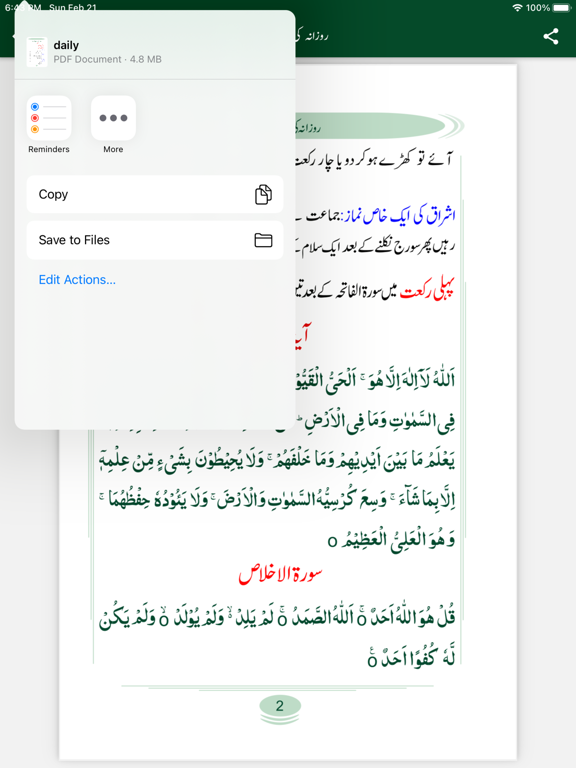 Sun Feb 21
100%
روزانہ کی
daily
PDF Document · 4.8 MB
Reminders
More
Copy
Save to Files
Edit Actions...
روزانہ کی
آئے تو کھڑے ہو کر دو یا چار رکعت
اشراق کی ایک خاص نماز: جماعت
رہیں پھر سورج نکلنے کے بعد ایک سلام
پہلی رکعت میں سورۃ الفاتحہ کے بعد تین
اَللّٰهُ لَآ اِلٰهَ اِلَّا هُوَ ۚ اَلْحَیُّ الْقَیُّوْ
فِی السَّمٰوٰتِ وَمَا فِی الْاَرْضِ ؕ
یَعْلَمُ مَا بَیْنَ اَیْدِیْهِمْ وَمَا خَلْفَهُمْ ۚ وَلَا یُحِیْطُوْنَ بِشَیْءٍ مِّنْ عِلْمِهٖٓ
اِلَّا بِمَا شَآءَ ۚ وَسِعَ کُرْسِیُّهُ السَّمٰوٰتِ وَالْاَرْضَ ۚ وَلَا یَئُوْدُهٗ حِفْظُهُمَا ۚ
وَهُوَ الْعَلِیُّ الْعَظِیْمُ o
سورۃ الاخلاص
قُلْ هُوَ اللّٰهُ اَحَدٌ ۚo اَللّٰهُ الصَّمَدُ ۚo لَمْ یَلِدْ ۙ وَلَمْ یُوْلَدْ ۙo وَلَمْ یَکُنْ
لَّهٗ کُفُوًا اَحَدٌ ۧo
2